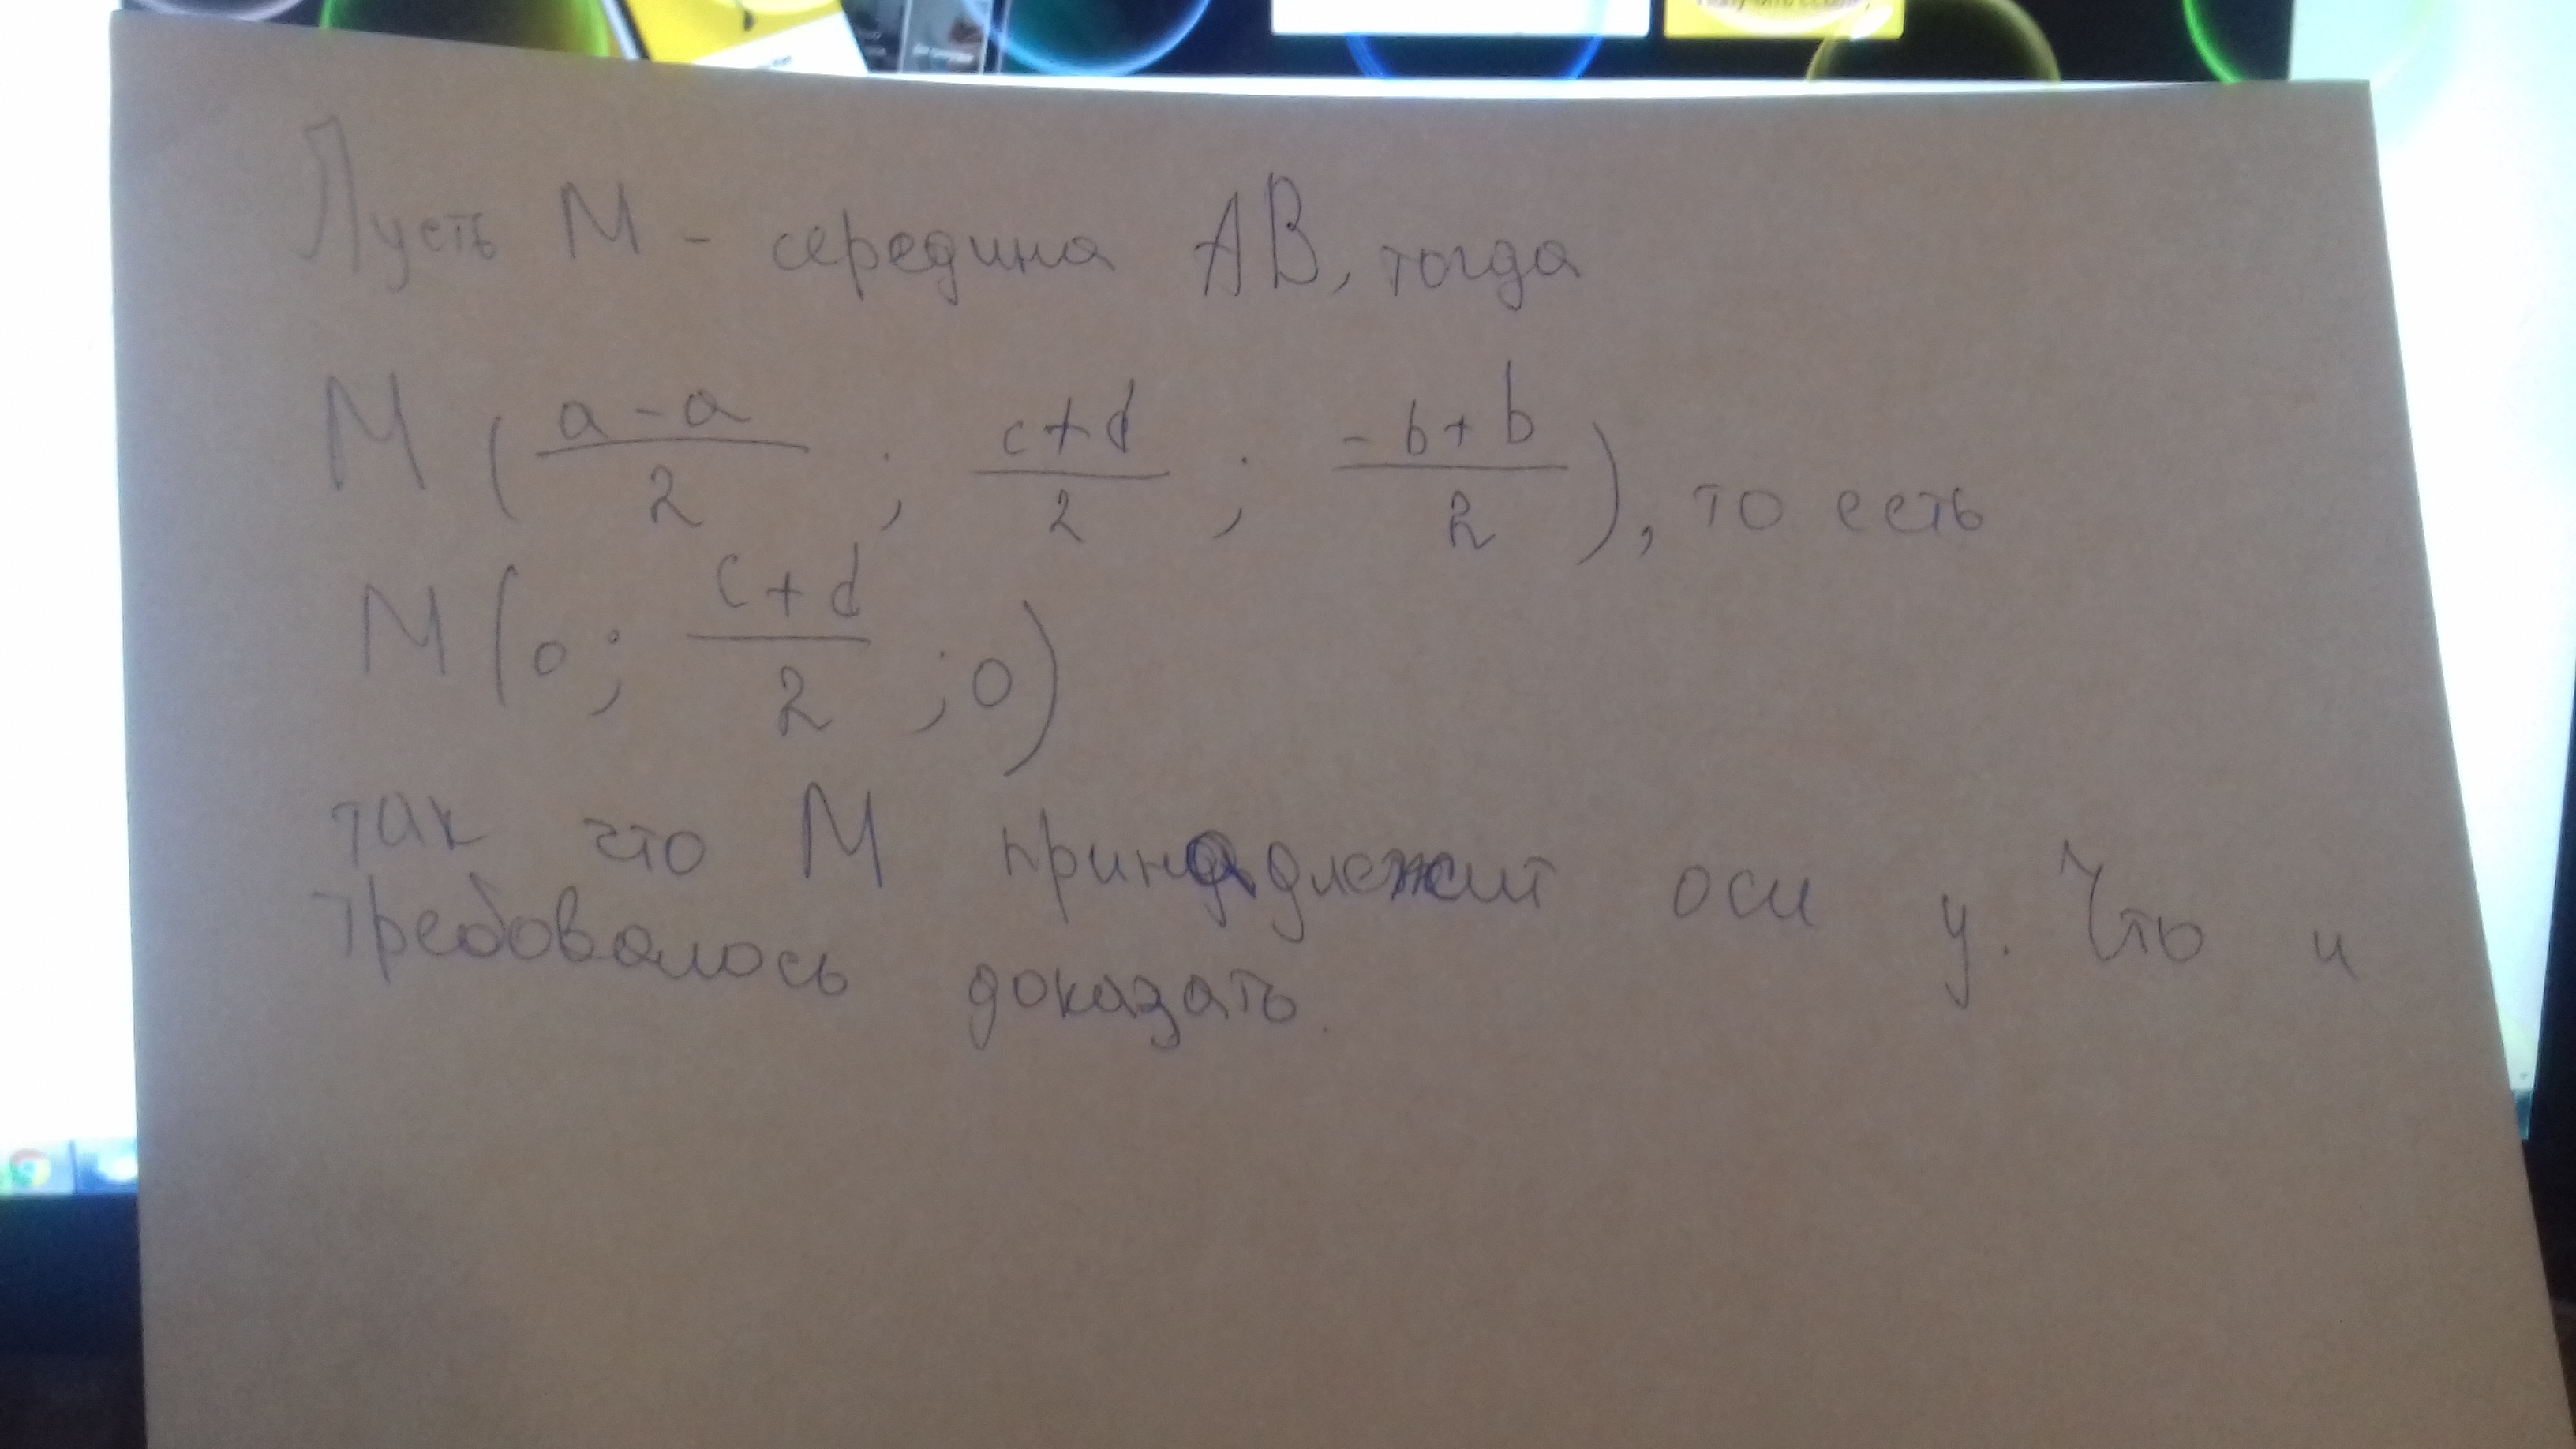 Пусть М - середина АВ, тогда
М ( \frac{a-a}{2} ; \frac{c+d}{2} ; \frac{-b+b}{2} ), то есть
М ( 0 ; \frac{c+d}{2} ; 0 )
так что М принадлежит оси у. Что и
требовалось доказать.